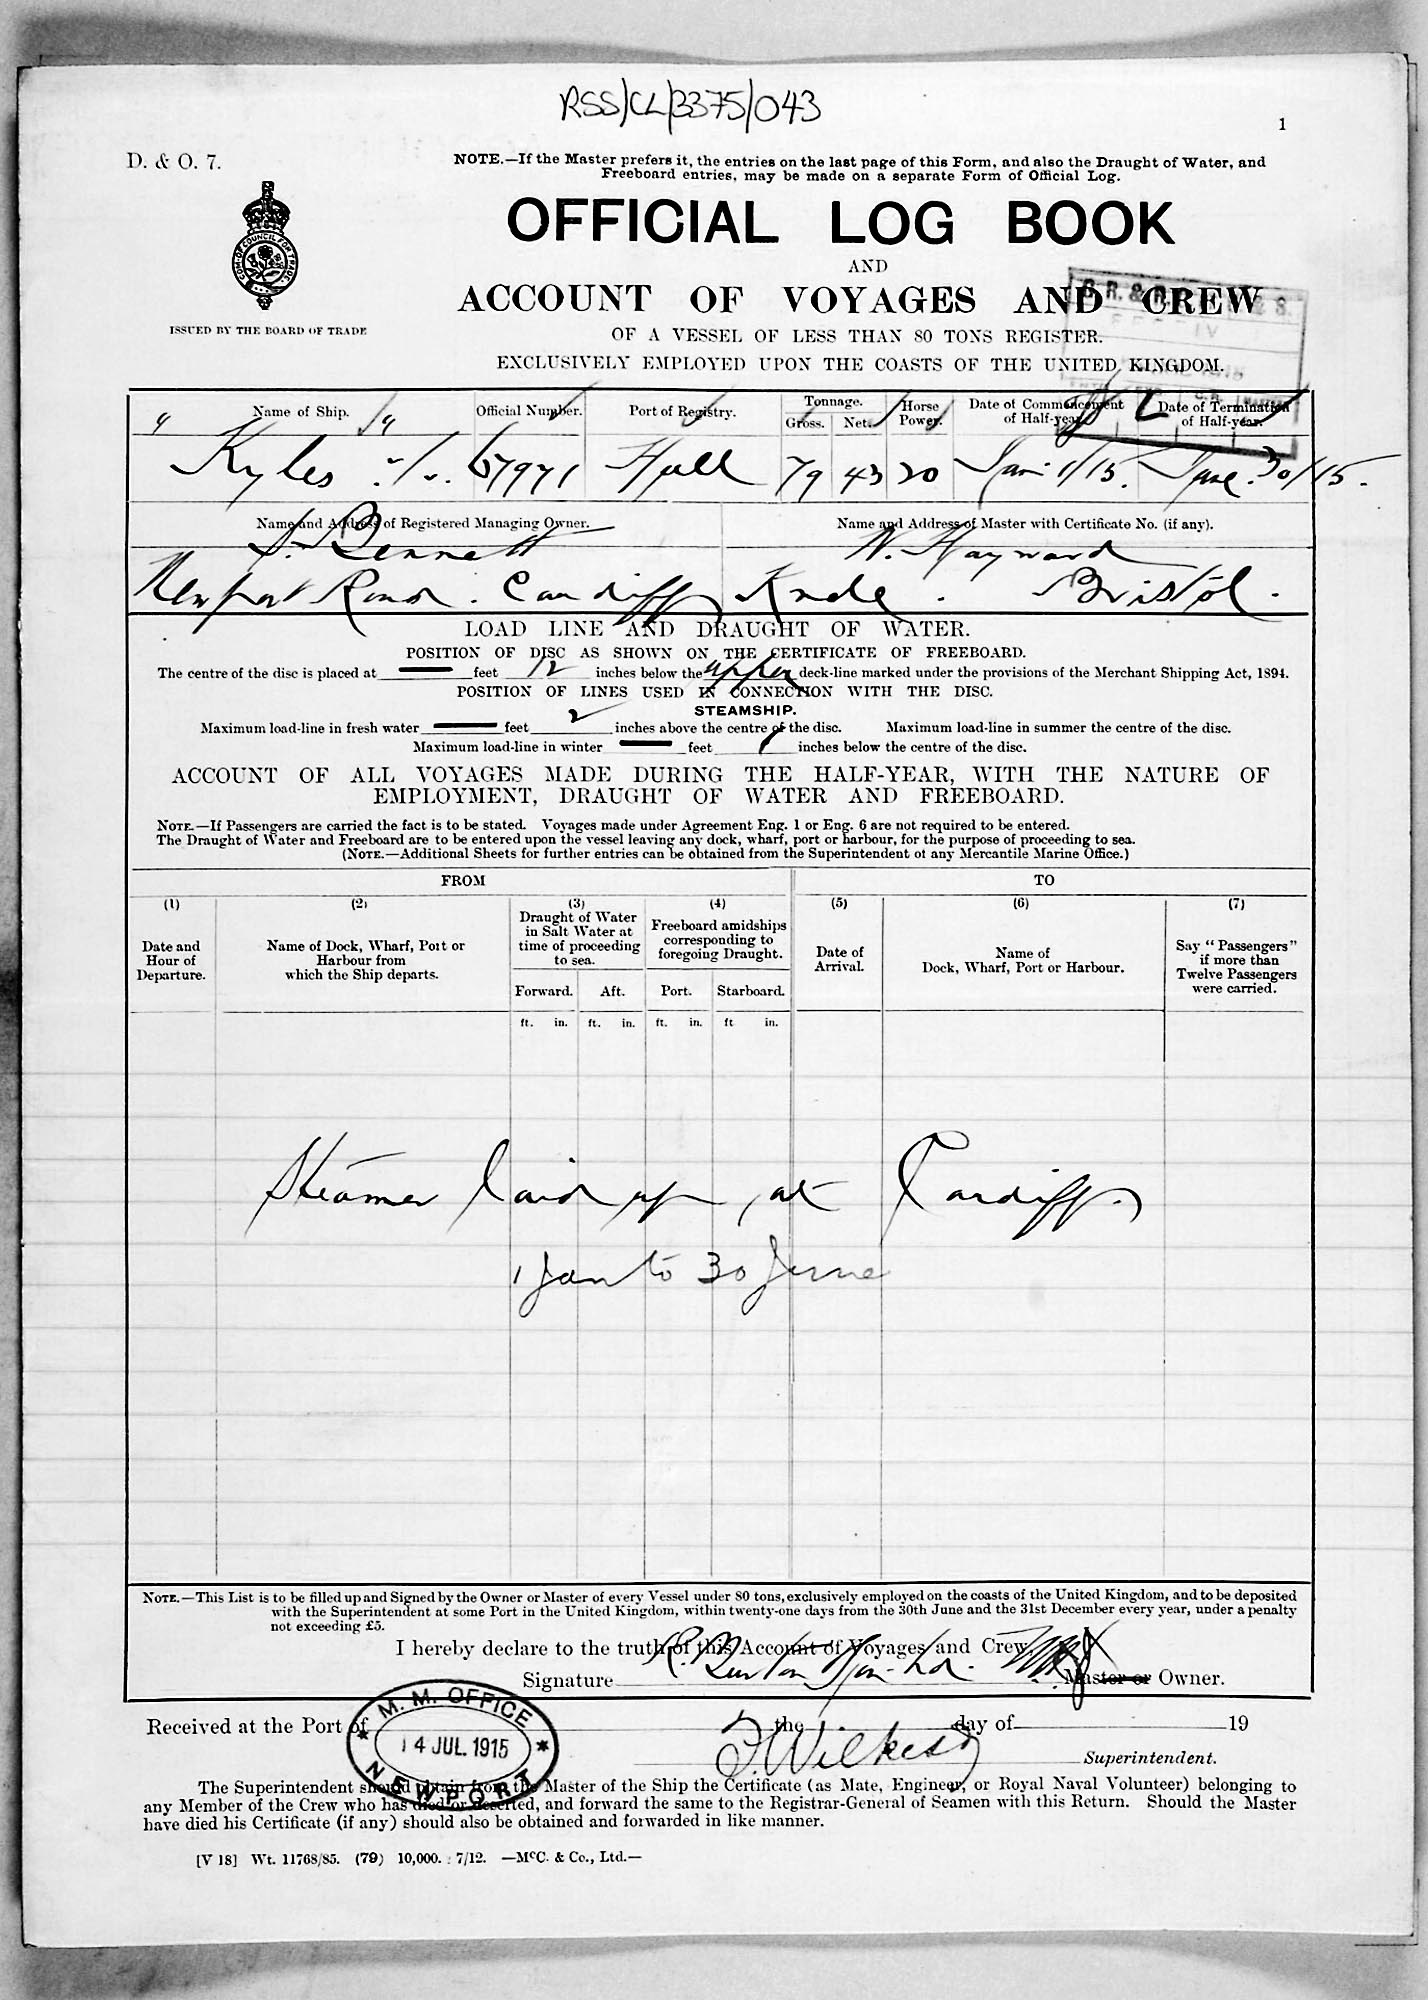 RSS/CL/3375/043
1
D. & O. 7.
NOTE.—If the Master prefers it, the entries on the last page of this Form, and also the Draught of Water, and
Freeboard entries, may be made on a separate Form of Official Log.
OFFICIAL LOG BOOK
AND
ACCOUNT OF VOYAGES AND CREW
ISSUED BY THE BOARD OF TRADE
OF A VESSEL OF LESS THAN 80 TONS REGISTER.
EXCLUSIVELY EMPLOYED UPON THE COASTS OF THE UNITED KINGDOM.
Name of Ship. Official Number. Port of Registry. Tonnage. Gross. Net. Horse Power. Date of Commencement of Half-year. Date of Termination of Half-year.
"Kyles" 67971 Hull 79 43 20 Jan 1/15. June 30/15.
Name and Address of Registered Managing Owner. Name and Address of Master with Certificate No. (if any).
S. Bennett W. Hayward
Newport Road. Cardiff Bristol.
LOAD LINE AND DRAUGHT OF WATER.
POSITION OF DISC AS SHOWN ON THE CERTIFICATE OF FREEBOARD.
The centre of the disc is placed at — feet 12 inches below the upper deck-line marked under the provisions of the Merchant Shipping Act, 1894.
POSITION OF LINES USED IN CONNECTION WITH THE DISC.
STEAMSHIP.
Maximum load-line in fresh water — feet 2 inches above the centre of the disc. Maximum load-line in summer the centre of the disc.
Maximum load-line in winter — feet 1 inches below the centre of the disc.
ACCOUNT OF ALL VOYAGES MADE DURING THE HALF-YEAR, WITH THE NATURE OF
EMPLOYMENT, DRAUGHT OF WATER AND FREEBOARD.
NOTE.—If Passengers are carried the fact is to be stated. Voyages made under Agreement Eng. 1 or Eng. 6 are not required to be entered.
The Draught of Water and Freeboard are to be entered upon the vessel leaving any dock, wharf, port or harbour, for the purpose of proceeding to sea.
(NOTE.—Additional Sheets for further entries can be obtained from the Superintendent of any Mercantile Marine Office.)
FROM TO
(1) (2) (3) (4) (5) (6) (7)
Date and Hour of Departure.
Name of Dock, Wharf, Port or Harbour from which the Ship departs.
Draught of Water in Salt Water at time of proceeding to sea.
Freeboard amidships corresponding to foregoing Draught.
Date of Arrival.
Name of Dock, Wharf, Port or Harbour.
Say "Passengers" if more than Twelve Passengers were carried.
Forward. Aft. Port. Starboard.
ft. in. ft. in. ft. in. ft in.
Steamer laid up, at Cardiff.
1 Jan to 30 June
NOTE.—This List is to be filled up and Signed by the Owner or Master of every Vessel under 80 tons, exclusively employed on the coasts of the United Kingdom, and to be deposited
with the Superintendent at some Port in the United Kingdom, within twenty-one days from the 30th June and the 31st December every year, under a penalty
not exceeding £5.
I hereby declare to the truth of this Account of Voyages and Crew,
Signature R. Burton Master or Owner.
M. M. OFFICE
14 JUL 1915
NEWPORT
Received at the Port of the day of 19
Superintendent.
The Superintendent should obtain from the Master of the Ship the Certificate (as Mate, Engineer, or Royal Naval Volunteer) belonging to
any Member of the Crew who has died or deserted, and forward the same to the Registrar-General of Seamen with this Return. Should the Master
have died his Certificate (if any) should also be obtained and forwarded in like manner.
[V 18] Wt. 11768/85. (79) 10,000. 7/12. —McC. & Co., Ltd.—